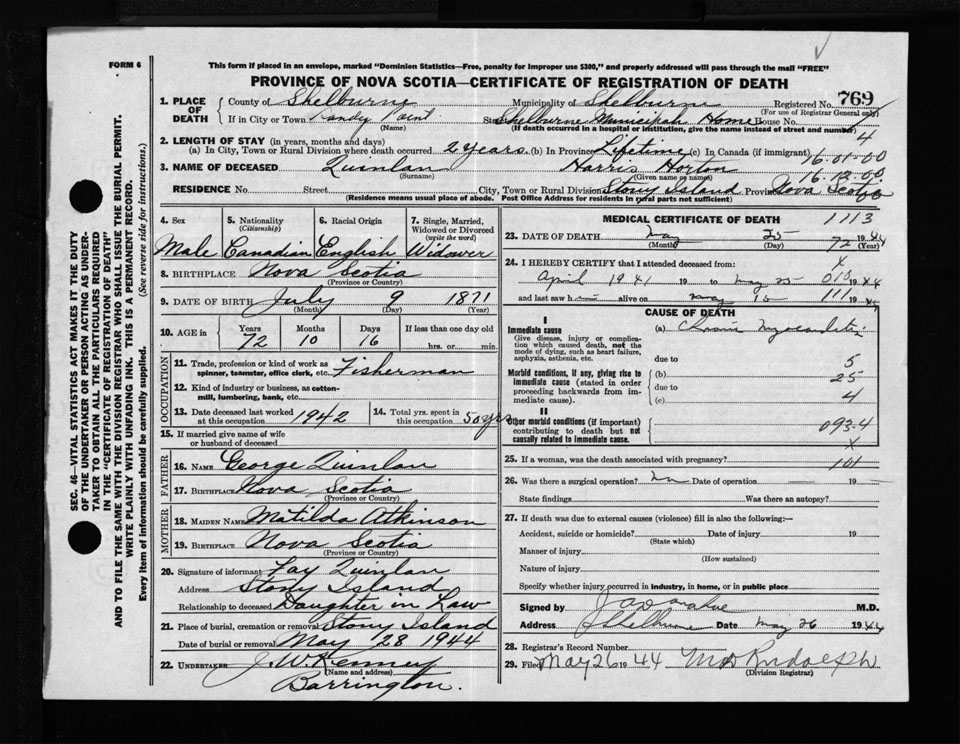 FORM 6
This form if placed in an envelope, marked "Dominion Statistics—Free, penalty for improper use $300," and properly addressed will pass through the mail "FREE"
PROVINCE OF NOVA SCOTIA—CERTIFICATE OF REGISTRATION OF DEATH
1. PLACE OF DEATH County of Shelburne Municipality of Shelburne Registered No. 769
(For use of Registrar General only)
If in City or Town Sandy Point Shelburne Municipal Home House No.
(Name) (If death occurred in a hospital or institution, give the name instead of street and number)
4
2. LENGTH OF STAY (in years, months and days)
(a) In City, Town or Rural Division where death occurred 2 years (b) In Province Lifetime (c) In Canada (if immigrant)
16-01-00
3. NAME OF DECEASED Quinlan Harris Horton
(Surname) (Given name or names)
16-12-00
RESIDENCE No. Street City, Town or Rural Division Stony Island Province Nova Scotia
(Residence means usual place of abode. Post Office Address for residents in rural parts not sufficient)
4. Sex 5. Nationality 6. Racial Origin 7. Single, Married, Widowed or Divorced
(Citizenship) (write the word)
Male Canadian English Widower
8. BIRTHPLACE Nova Scotia
(Province or Country)
9. DATE OF BIRTH July 9 1871
(Month) (Day) (Year)
10. AGE in Years Months Days If less than one day old
72 10 16 hrs. or min.
OCCUPATION
11. Trade, profession or kind of work as spinner, teamster, office clerk, etc. Fisherman
12. Kind of industry or business, as cotton-mill, lumbering, bank, etc.
13. Date deceased last worked at this occupation 1942 14. Total yrs. spent in this occupation 50 yrs
15. If married give name of wife or husband of deceased
FATHER
16. NAME George Quinlan
17. BIRTHPLACE Nova Scotia
(Province or Country)
MOTHER
18. MAIDEN NAME Matilda Atkinson
19. BIRTHPLACE Nova Scotia
(Province or Country)
20. Signature of informant Fay Quinlan
Address Stony Island
Relationship to deceased Daughter in Law
21. Place of burial, cremation or removal Stony Island
Date of burial or removal May 28 1944
22. UNDERTAKER J. W. Kenney
(Name and address)
Barrington.
MEDICAL CERTIFICATE OF DEATH 1113
23. DATE OF DEATH May 25 1944
(Month) (Day) 72 (Year)
24. I HEREBY CERTIFY that I attended deceased from: 4
April 1941 to May 25 010 1944
and last saw h alive on May 15 111 1944
CAUSE OF DEATH
I
Immediate cause (a) Chronic Myocarditis
Give disease, injury or complication which caused death, not the mode of dying, such as heart failure, asphyxia, asthenia, etc.
due to 5
Morbid conditions, if any, giving rise to immediate cause (stated in order proceeding backwards from immediate cause).
(b) 25
due to
(c) 4
II
Other morbid conditions (if important) contributing to death but not causally related to immediate cause.
093-4
X
25. If a woman, was the death associated with pregnancy? 101
26. Was there a surgical operation? No Date of operation 19
State findings Was there an autopsy?
27. If death was due to external causes (violence) fill in also the following:—
Accident, suicide or homicide? Date of injury 19
(State which)
Manner of injury
(How sustained)
Nature of injury
Specify whether injury occurred in industry, in home, or in public place
Signed by M.D.
Address Shelburne Date May 26 1944
28. Registrar's Record Number
29. Filed May 26 1944 Rudolph
(Division Registrar)
SEC. 46—VITAL STATISTICS ACT MAKES IT THE DUTY
OF THE UNDERTAKER OR PERSON ACTING AS UNDER-
TAKER TO OBTAIN ALL THE PARTICULARS REQUIRED
IN THE "CERTIFICATE OF REGISTRATION OF DEATH"
AND TO FILE THE SAME WITH THE DIVISION REGISTRAR WHO SHALL ISSUE THE BURIAL PERMIT.
WRITE PLAINLY WITH UNFADING INK. THIS IS A PERMANENT RECORD.
Every item of information should be carefully supplied. (See reverse side for instructions.)